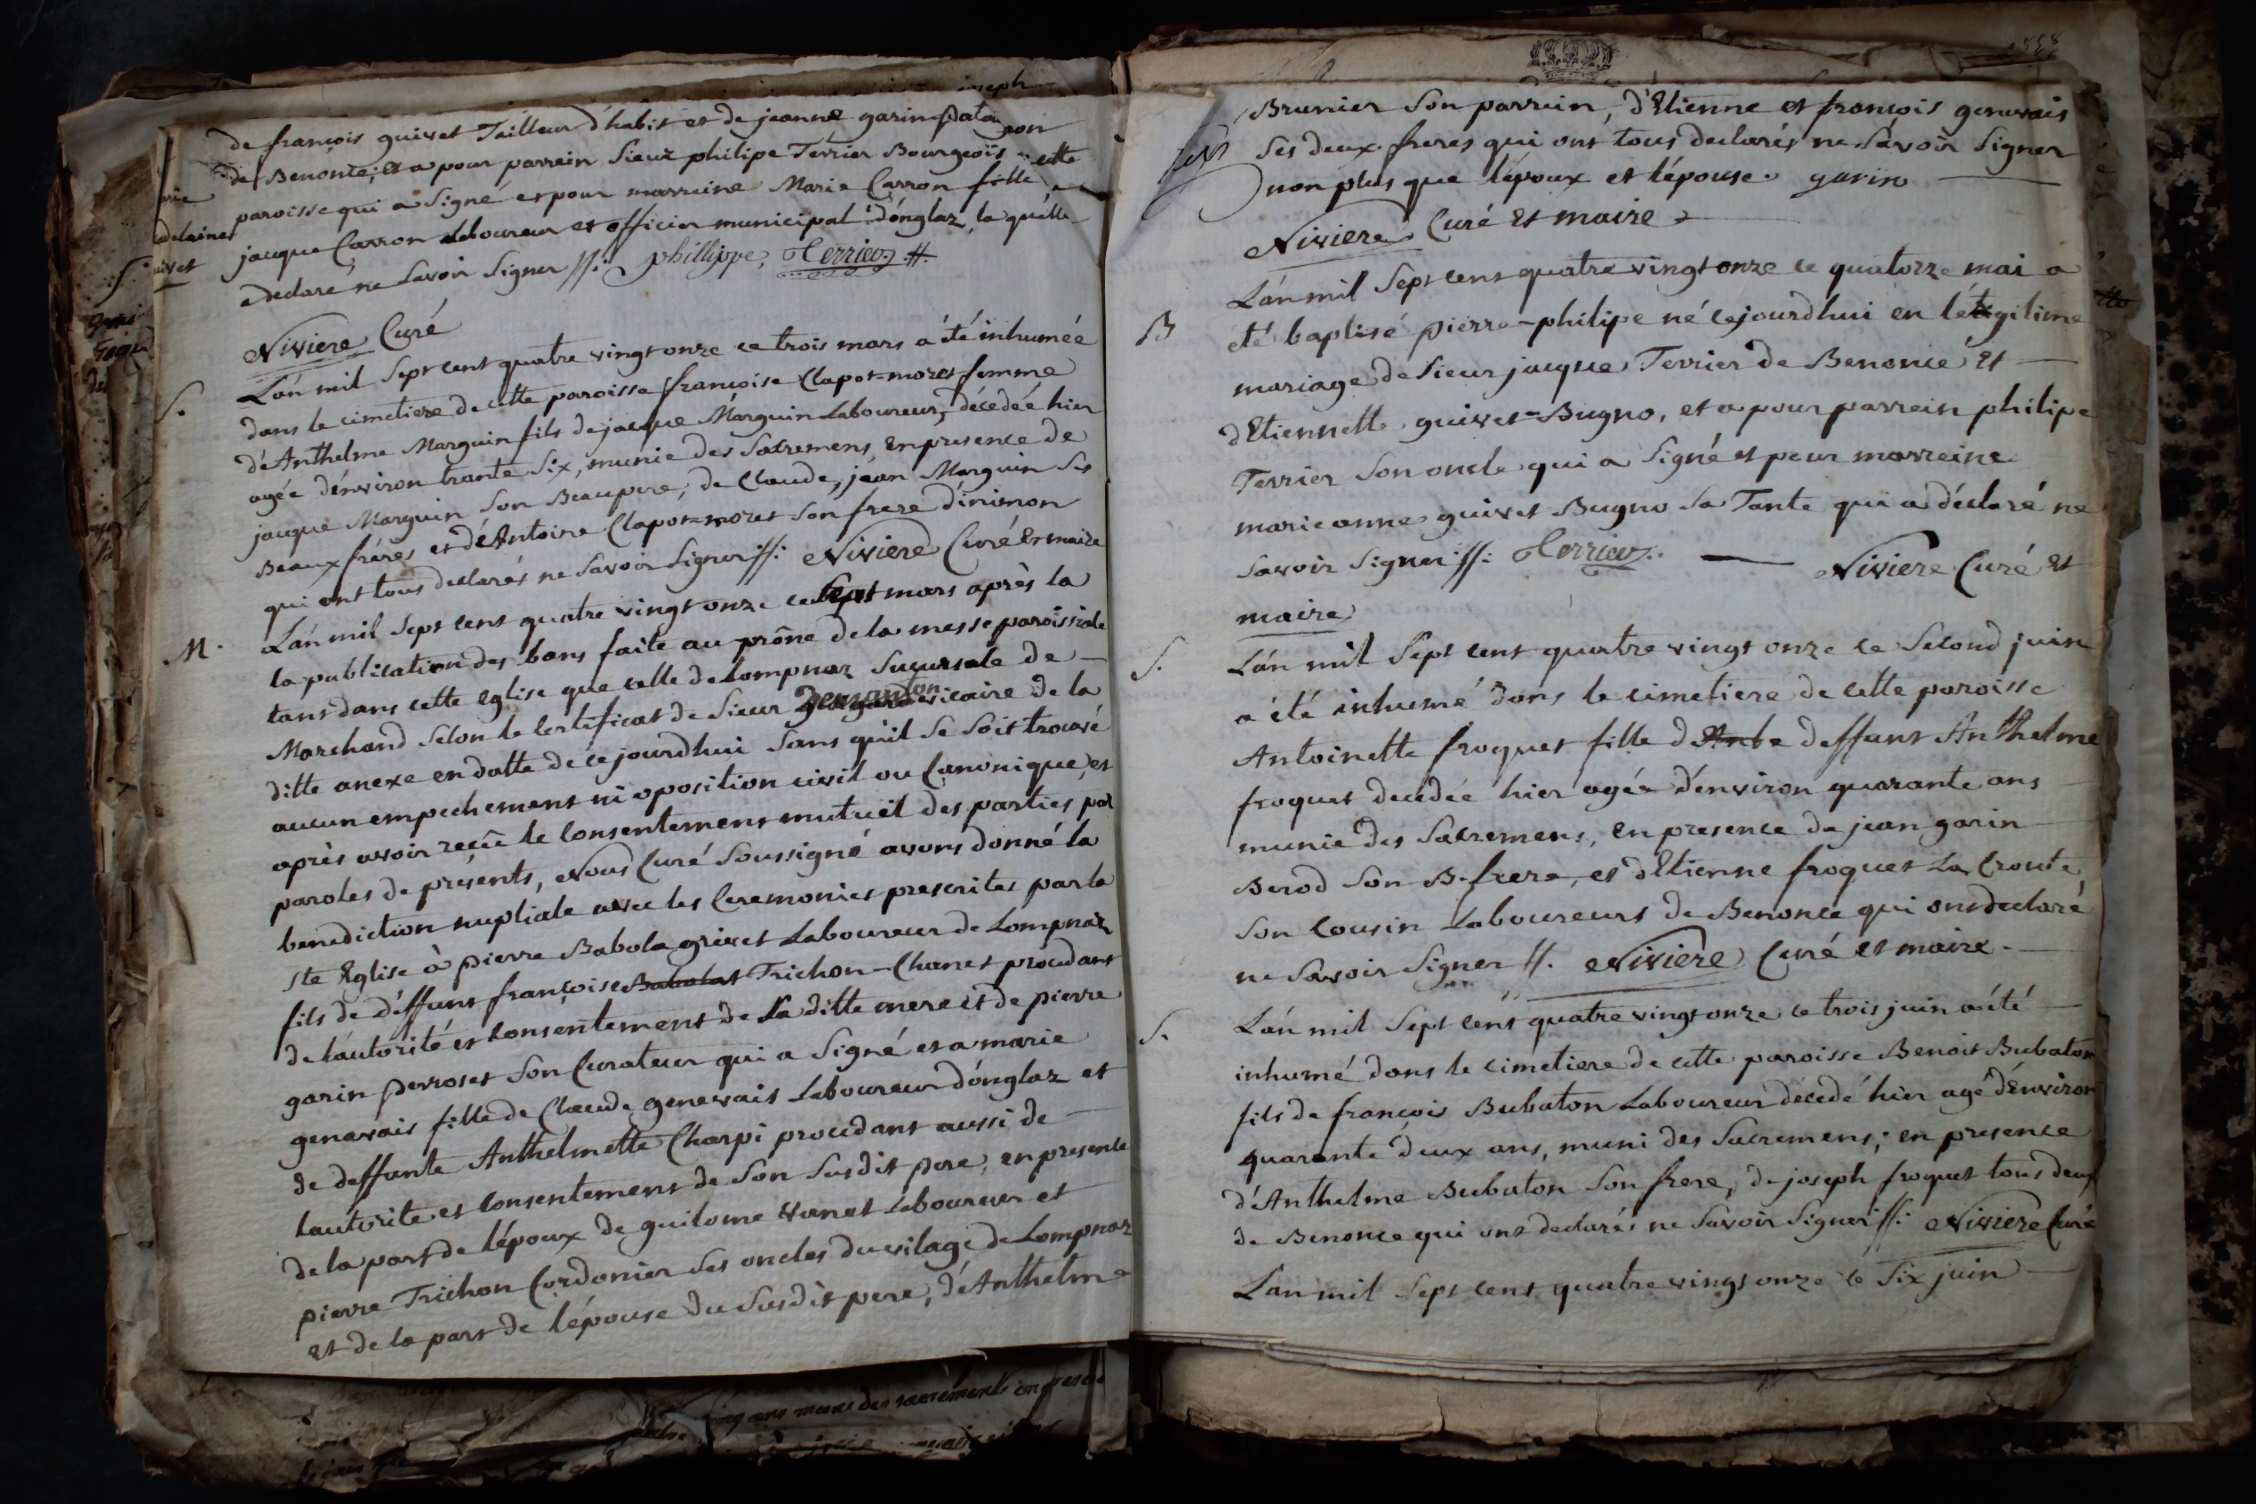 de françois guivet Tailleur d'habit et de jeanne garin patagon
de Benonce, et a pour parrein sieur philipe Terrier Bourgeois cette
paroisse qui a signé et pour marreine Marie Carron fille
jacque Carron laboureur et officier municipal d'onglaz, la quelle
a declaré ne savoir signer //: phillippe, Terrier
Niviere Curé
S.
L'an mil sept cent quatre vingt onze ce trois mars a été inhumée
dans le cimetiere de cette paroisse françoise Clapot=moret femme
d'Anthelme Marguin fils de jacque Marguin Laboureur, décedée hier
agée d'environ trante six, munie des sacremens, en presence de
jacque Marguin son Beaupere, de Claude, jean Marguin ses
Beaux fréres et d'Antoine Clapot=moret son frere d'inimon
qui ont tous declarés ne savoir signer //: Niviere Curé et maire
M.
L'an mil sept cent quatre vingt onze ce sept mars après la
la publication des bans faite au prône de la messe paroissiale
tant dans cette eglise que celle de Lompnaz sucursale de
Marchand selon le certificat de sieur vicaire de la
ditte anexe en datte de cejourdhui sans qu'il se soit trouvé
aucun empechement ni oposition civil ou Canonique, et
après avoir reçu le consentement mutuel des parties, par
paroles de présents, Nous Curé soussigné avons donné la
benediction nuptiale avec les Ceremonies prescrites par la
ste Eglise à pierre Babola grivet Laboureur de Lompnaz
fils de déffunt françoise Babolat Trichon-Chanet procedant
de l'autorité et consentement de sa ditte mere et de pierre
garin perroset son Curateur qui a signé et a marie
genevais fille de Claude genevais Laboureur d'onglaz et
de deffunte Anthelmette Charpi procedant aussi de
l'autorité et consentement de son susdit pere, en presence
de la part de l'époux de guilome vanet Laboureur et
pierre Trichon Cordonier ses oncles du vilage de Lompnaz
et de la part de l'épouse du susdit pere, d'Anthelme
Brunier son parrein, d'Etienne et françois genevais
ses deux freres qui ont tous declarés ne savoir signer
non plus que l'époux et l'épouse. garin
Niviere Curé et maire
B
L'an mil sept cent quatre vingt onze ce quatorze mai a
été baptisé pierre-philipe né cejourdhui en létgitime
mariage de sieur jacque Terrier de Benonce et
d'Etiennette guivet=Bugno, et a pour parrein philipe
Terrier son oncle qui a signé et pour marreine
marie anne guivet Bugno sa Tante qui a déclaré ne
savoir signer //: Terrier. Niviere Curé et
maire
S.
L'an mil sept cent quatre vingt onze ce second juin
a été inhumé dans le cimetiere de cette paroisse
Antoinette froquet fille d deffunt Anthelme
froquet decedée hier agée d'environ quarante ans
munie des sacremens, en presence de jean garin
Berod son B. frere, et d'Etienne froquet La Croute
son cousin Laboureurs de Benonce qui ont declaré
ne savoir signer //. Niviere Curé et maire.
S.
L'an mil sept cent quatre vingt onze ce trois juin a été
inhumé dans le cimetiere de cette paroisse Benoit Bubaton
fils de françois Bubaton Laboureur décedé hier agé d'environ
quarante deux ans, muni des sacremens; en presence
d'Anthelme Bubaton son frere, de joseph froquet tous deux
de Benonce qui ont declarés ne savoir signer //: Niviere Curé
L'an mil sept cent quatre vingt onze le six juin